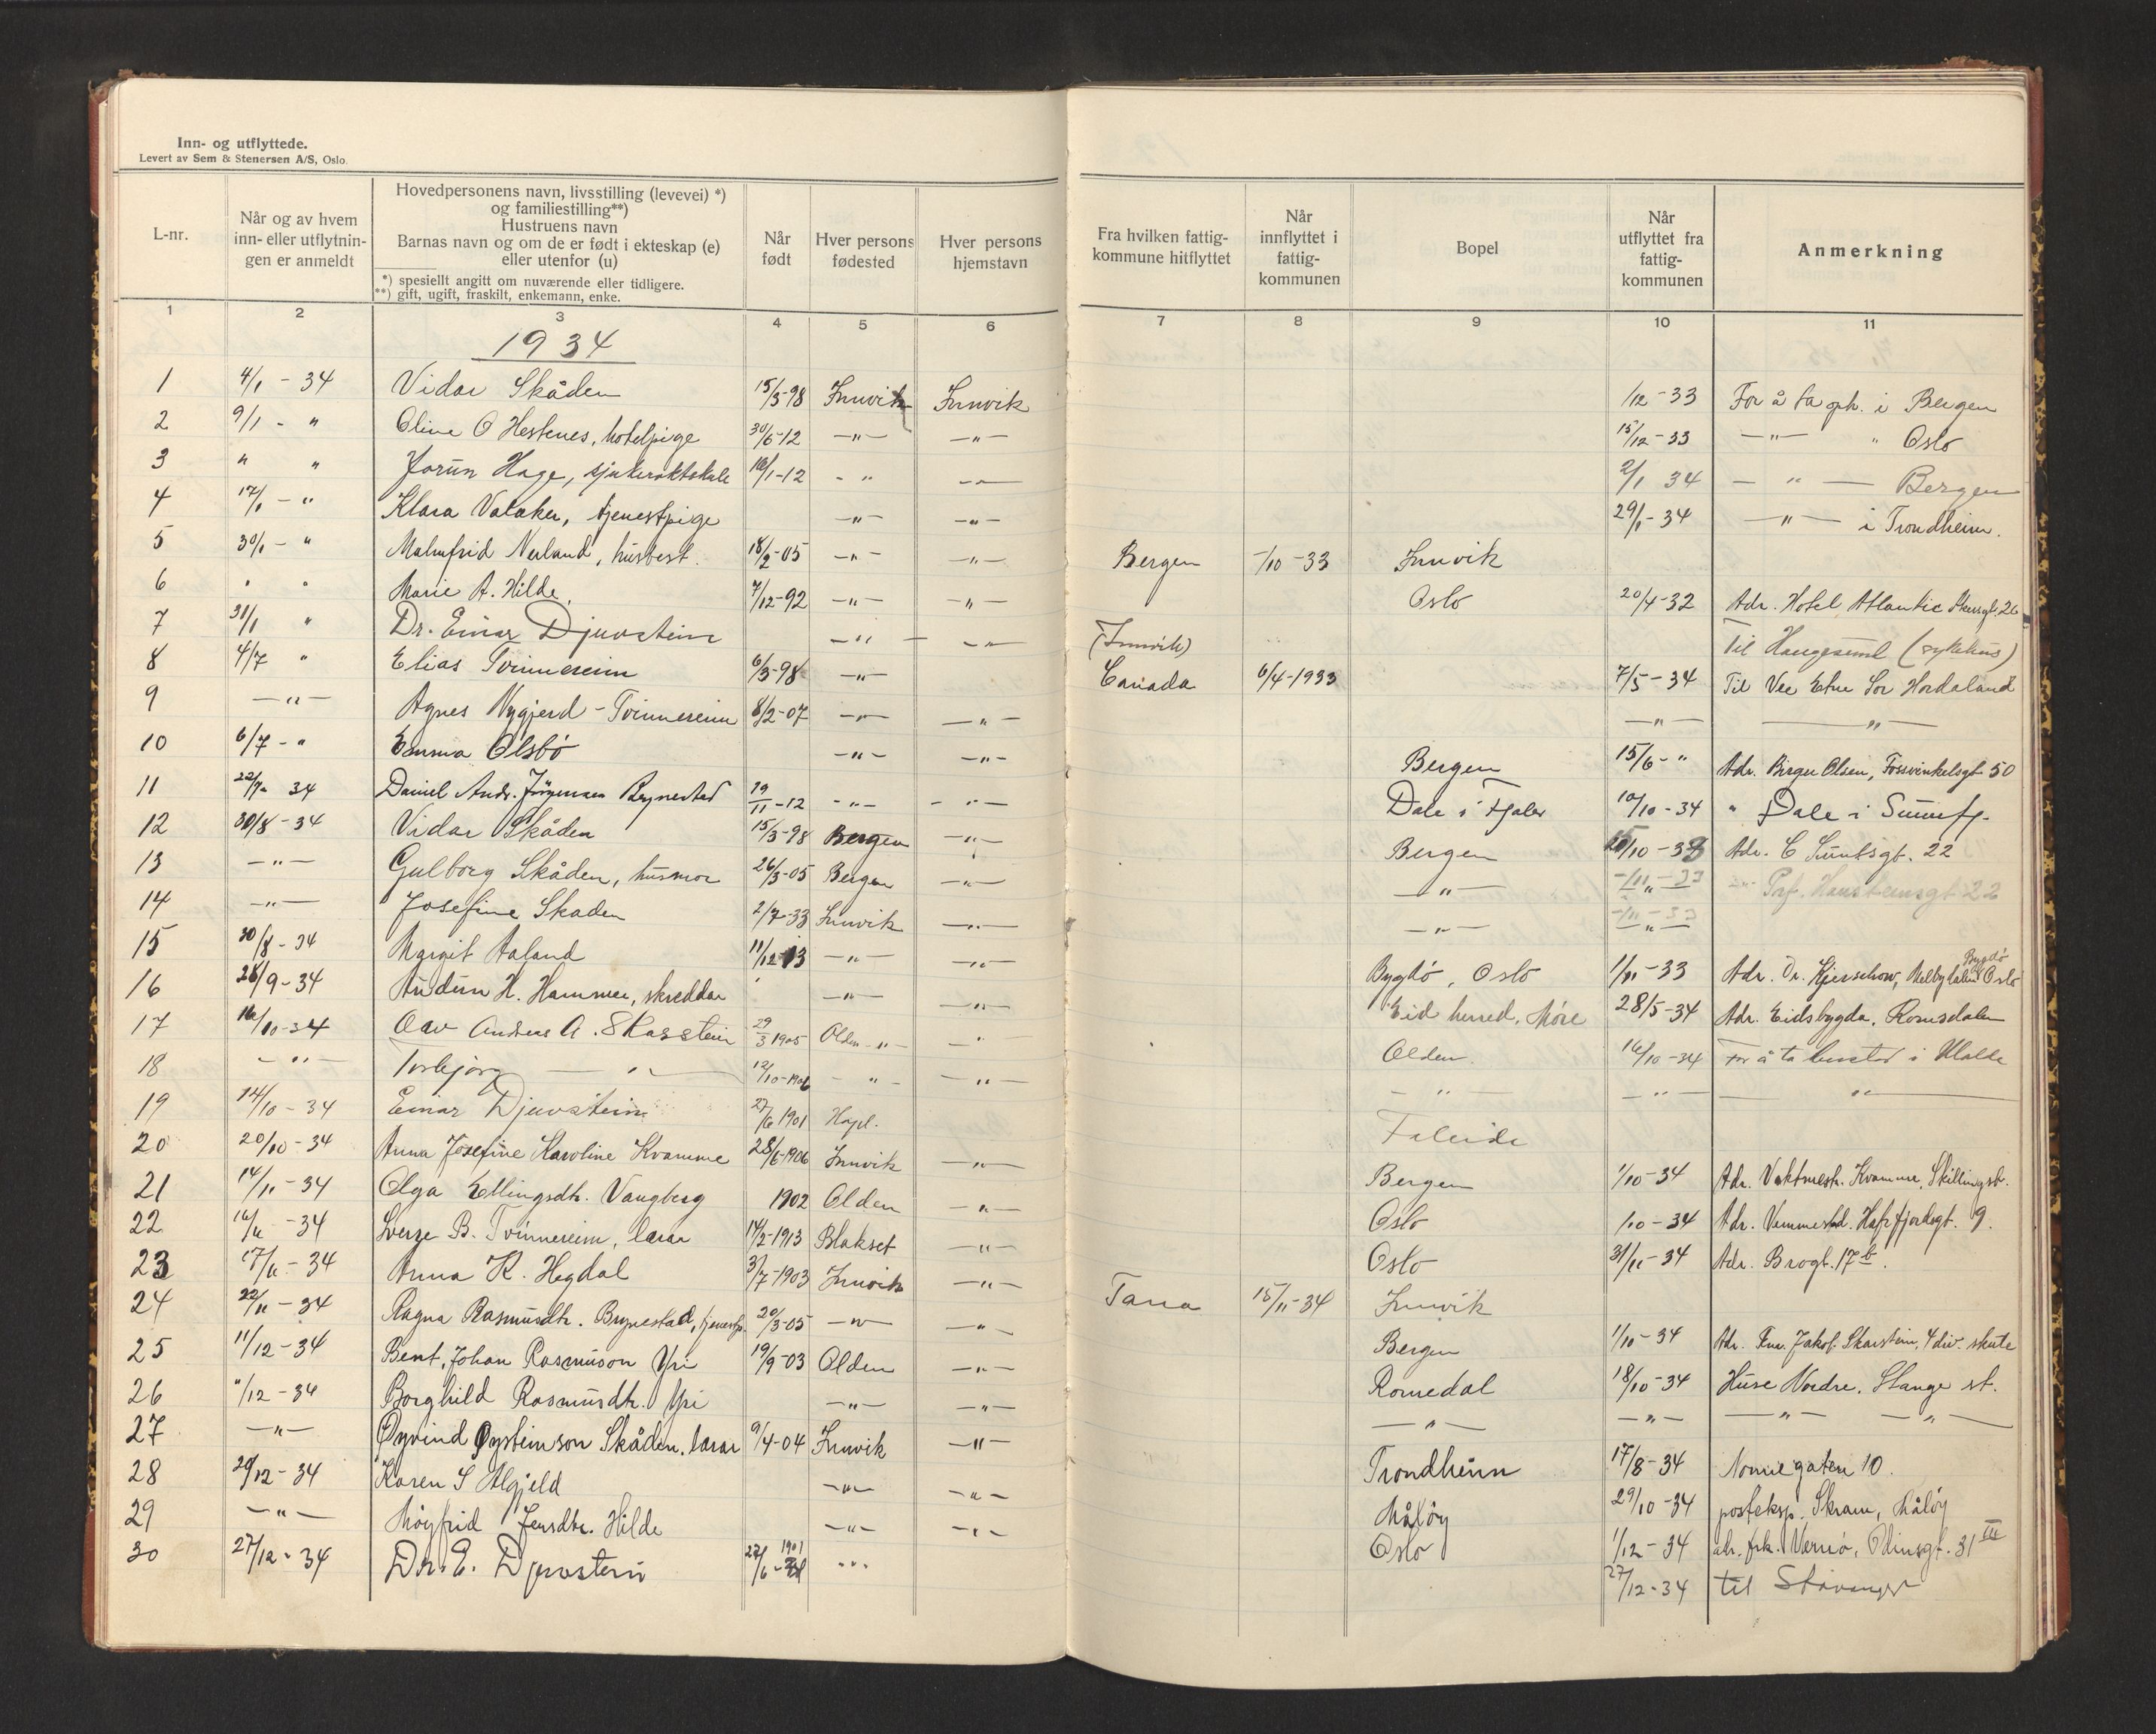 Inn- og utflyttede.
Levert av Sem & Stenersen A/S, Oslo.
L-nr.
Når og av hvem inn- eller utflytnin- gen er anmeldt
Hovedpersonens navn, livsstilling (levevei) *)
og familiestilling**)
Hustruens navn
Barnas navn og om de er født i ekteskap (e)
eller utenfor (u)
*) spesiellt angitt om nuværende eller tidligere.
**) gift, ugift, fraskilt, enkemann, enke.
Når født
Hver persons fødested
Hver persons hjemstavn
Fra hvilken fattig- kommune hitflyttet
Når innflyttet i fattig- kommunen
Bopel
Når utflyttet fra fattig- kommunen
Anmerkning
1 2 3 4 5 6 7 8 9 10 11
1934
1 4/1 - 34 Vidar Skåden 15/3-98 Innvik Innvik 1/12-33 For å ta oph. i Bergen
2 9/1 - " Oline O Hestenes, hotelpige 30/6-12 -"- -"- 15/12-33 -"- " Oslo
3 " " Jorun Hage, 18/1-12 - " -"- 2/1 34 - " - Bergen
4 17/1 - " Klara Valaker, tjenestpige -"- -"- 29/1-34 -"- i Trondheim.
5 30/1 - " Malmfrid Nerland, husbest. 18/2-05 -"- -"- Bergen -/10-33 Innvik
6 " " Marie A. Hilde. 7/12-92 -"- -"- Oslo 20/4-32 Adr. Hotel Atlantic 26
7 31/1 " Dr. Einar Djuvstein -"- -"- (Innvik) Til Haugesund (sykehus)
8 4/7 " Elias Tvinnereim 6/3-98 -"- Canada 6/4-1933 7/5-34 Til Etne Sør Hordaland
9 -"- Agnes Nygjerd-Tvinnereim 8/2-07 -"- -"- -"- -"-
10 6/7 - " Emma Olsbö -"- -"- Bergen 15/6-" Adr. Birger Olsen, Fossvinkelsgt 50
11 22/9- 34 Daniel Andr. Jörgensen 19/11-12 -"- -"- Dale i Fjaler 10/10-34 " Dale i Sunnfj.
12 30/8-34 Vidar Skåden 15/3-98 Bergen -"- Bergen 15/10-33 Adr. C Suntsgt. 22
13 -"- Gulborg Skåden, husmor 26/3-05 Bergen -"- -"- -/11-33 Prf. Hansteensgt 22
14 -"- Josefine Skaden 2/7-33 Innvik -"- -"- -/11-33
15 30/8-34 Margit Aaland 11/12-13 -"- -"- Bygdö, Oslo 1/11-33 Adr. Dr. Kjerschow, Bygdö Oslo
16 28/9-34 Audun H. Hammer, skreddar -"- -"- Eid herred, Möre 28/5-34 Adr. Eidsbygda, Romsdalen
17 16/10-34 Olav Andreas A. Skarstein 29/3 1905 Olden -"- -"- Olden 16/10-34 For å ta bustad i
18 -"- Torbjørg -"- 12/10-1906 - " - -"- -"- -"- -"-
19 14/10-34 Einar Djuvstein 27/6 1901 Faleide
20 20/10-34 Anna Josefine Karoline Kvamme 28/6-1906 Innvik -"- Bergen 1/10-34 Adr. Vaktmestr. Kvamme, Skillingsb.
21 14/11-34 Olga Ellingsdtr. Vangberg 1902 Olden -"- Oslo /10-34 Adr. Vammestad. Hafrsfjordsgt. 9.
22 16/11-34 Sverre B. Tvinnereim, lærar 14/2-1913 Blakset -"- Oslo 31/11-34 Adr. Brogt. 17 b.
23 17/11-34 Anna K. Hegdal 3/7-1903 Innvik -"- Tana 15/11-34 Innvik
24 22/11-34 Ragna Rasmusdtr. Brynestad, 20/3-05 -"- -"- Bergen 1/10-34 Adr. Jakob Skarstein, 4 div. skute
25 11/12-34 Bent Johan Rasmuson Yri 19/9-03 Olden -"- Romedal 18/10-34 Huse Nordre. Stange st.
26 "/12-34 Borghild Rasmusdtr. Yri -"- -"- -"- -"- -"- -"-
27 -"- Øyvind Øysteinson Skåden, lærar 9/4-04 Innvik -"- Trondheim 17/8-34 Nonnegaten 10.
28 29/12-34 Karen S Algjeld -"- -"- Måløy 29/10-34 posteksp. Skram, Måløy
29 -"- Møyfrid Jensdtr. Hilde -"- -"- Oslo 1/12-34 adr. frk. Odinsgt. 31 III
30 27/12-34 Dr. E. Djuvstein 27/6 1901 -"- 27/12-34 til Stavanger